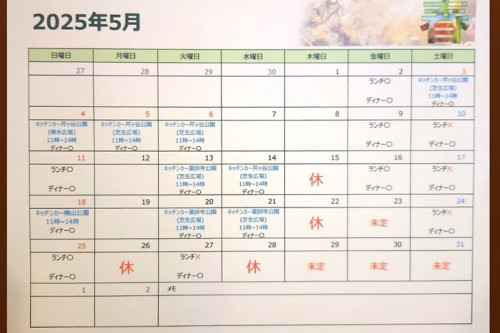 2025年5月
春
日曜日 月曜日 火曜日 水曜日 木曜日 金曜日 土曜日
27 28 29 30 1 2 3
ランチ〇
ディナー〇
キッチンカー芹ヶ谷公園
(芝生広場)
11時〜14時
ディナー〇
4 5 6 7 8 9 10
キッチンカー芹ヶ谷公園
(噴水広場)
11時〜14時
ディナー〇
キッチンカー芹ヶ谷公園
(芝生広場)
11時〜14時
ディナー〇
キッチンカー芹ヶ谷公園
(芝生広場)
11時〜14時
ディナー〇
ランチ〇
ディナー〇
ランチ×
ディナー〇
11 12 13 14 15 16 17
ランチ〇
ディナー〇
キッチンカー薬師寺公園
(芝生広場)
11時〜14時
キッチンカー芹ヶ谷公園
(芝生広場)
11時〜14時
休
ランチ〇
ディナー〇
ランチ×
ディナー〇
18 19 20 21 22 23 24
キッチンカー横山公園
11時〜14時
ディナー〇
キッチンカー薬師寺公園
(芝生広場)
11時〜14時
ディナー〇
キッチンカー薬師寺公園
(芝生広場)
11時〜14時
ディナー〇
休
未定
ランチ×
ディナー〇
25 26 27 28 29 30 31
ランチ〇
ディナー〇
休
ランチ×
ディナー〇
休
未定
未定
未定
1 2 メモ